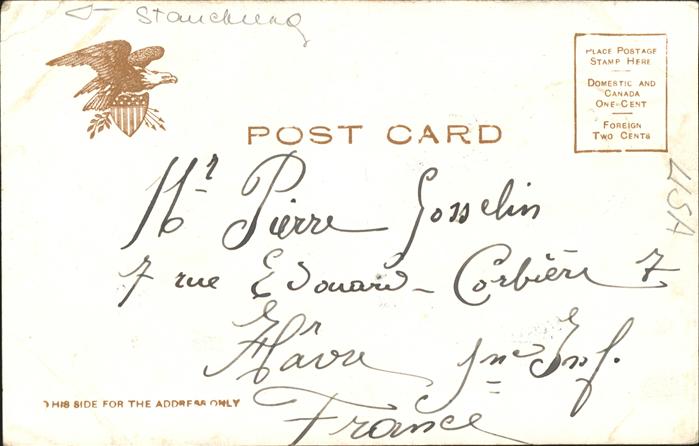 Stauchung
PLACE POSTAGE
STAMP HERE
DOMESTIC AND
CANADA
ONE-CENT
FOREIGN
TWO CENTS
POST CARD
USA
Mr Pierre Gosselin
7 rue Edouard-Corbière 7
Hâvre Sne Inf.
France
THIS SIDE FOR THE ADDRESS ONLY